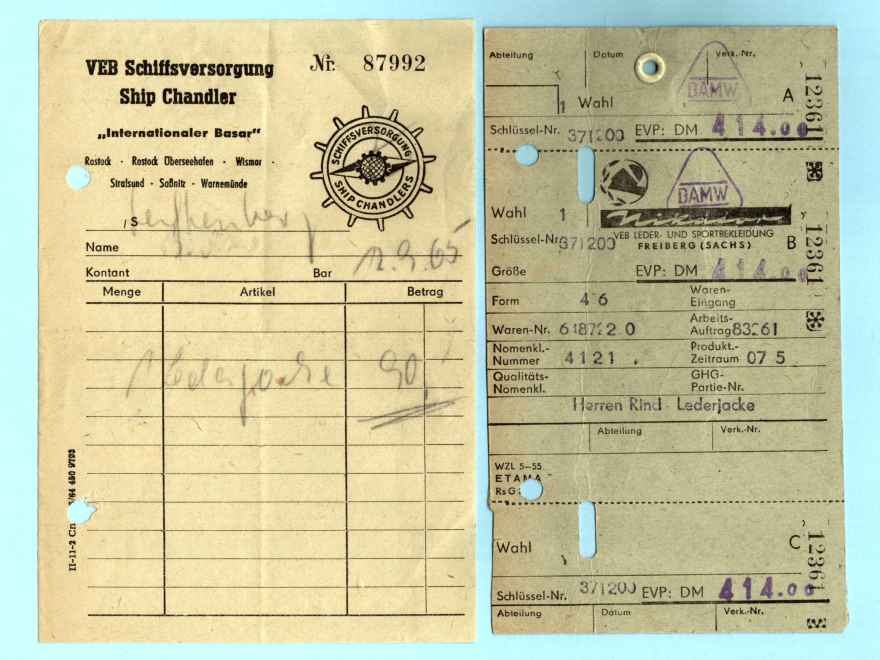 VEB Schiffsversorgung
Ship Chandler
Nr. 87992
„Internationaler Basar"
Rostock · Rostock Überseehafen · Wismar ·
Stralsund · Saßnitz · Warnemünde
SCHIFFSVERSORGUNG
SHIP CHANDLERS
Name
12.9.65
Kontant
Bar
Menge
Artikel
Betrag
1 Lederjacke 90,
Abteilung
Datum
Verk.-Nr.
DAMW
1 Wahl
A
12361
Schlüssel-Nr. 371200 EVP: DM 414.00
DAMW
Wahl 1
VEB LEDER- UND SPORTBEKLEIDUNG
FREIBERG (SACHS)
B
12361
Schlüssel-Nr. 371200
Größe
EVP: DM 414.00
Form 46
Waren-
Eingang
Waren-Nr.
Arbeits-
Auftrag 83261
Nomenkl.-
Nummer 4121
Produkt.-
Zeitraum 07 5
Qualitäts-
Nomenkl.
GHG-
Partie-Nr.
Herren Rind Lederjacke
Abteilung
Verk.-Nr.
WZL 5–55
ETAMA
RsG
Wahl
C
12361
Schlüssel-Nr. 371200 EVP: DM 414.00
Abteilung
Datum
Verk.-Nr.